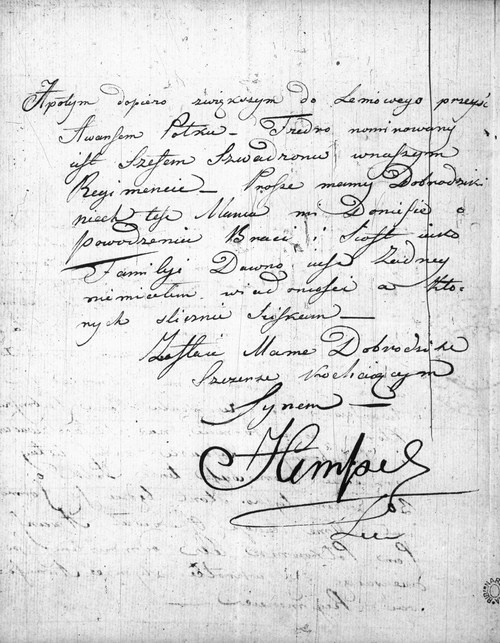 Apotym dopiero zwiększym do Lemowego przeyść
Awansem Półku – Fredro nominowany
iest Szefem Szwadronu wnaszym
Regimencie – Prosze mamy Dobrodziki
niech też Mania mi Doniesie o
powodzeniu Braci i Siost iako
Familyi Dawno iusz Żadney
niemiałem wiadomości a Któ-
rych slicznie Sciskam –
Zostaie Mame Dobrodzike
Szczerze Kochaiącym
Synem –
Hempel